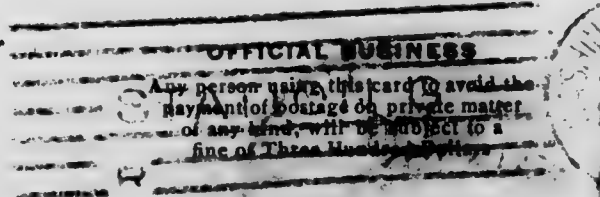 OFFICIAL BUSINESS
Any person using this card to avoid the
payment of postage on private matter
of any kind, will be subject to a
fine of Three Hundred Dollars